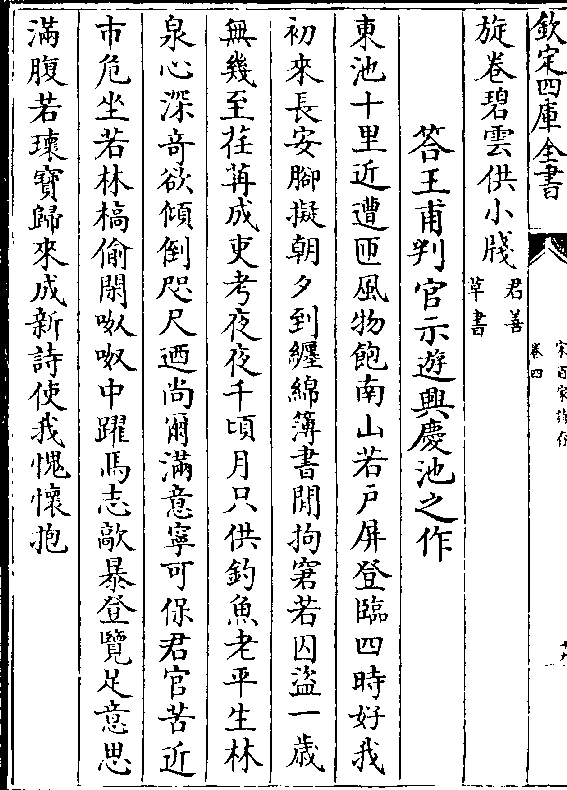 欽定四庫全書
卷四
旋卷碧雲供小牋君善草書
荅王甫判官示遊興慶池之作
東池十里近遭匝風物飽南山若戸屏登臨四時好我
初來長安腳擬朝夕到纏綿簿書間拘窘若囚盜一歳
無幾至荏苒成吏考夜夜千頃月只供釣魚老平生林
泉心深竒欲傾倒咫尺迺尚爾滿意寧可保君官苦近
市危坐若林槁偷閑呶呶中躍馬志敲暴登覽足意思
滿腹若瓌寶歸來成新詩使我愧懷抱